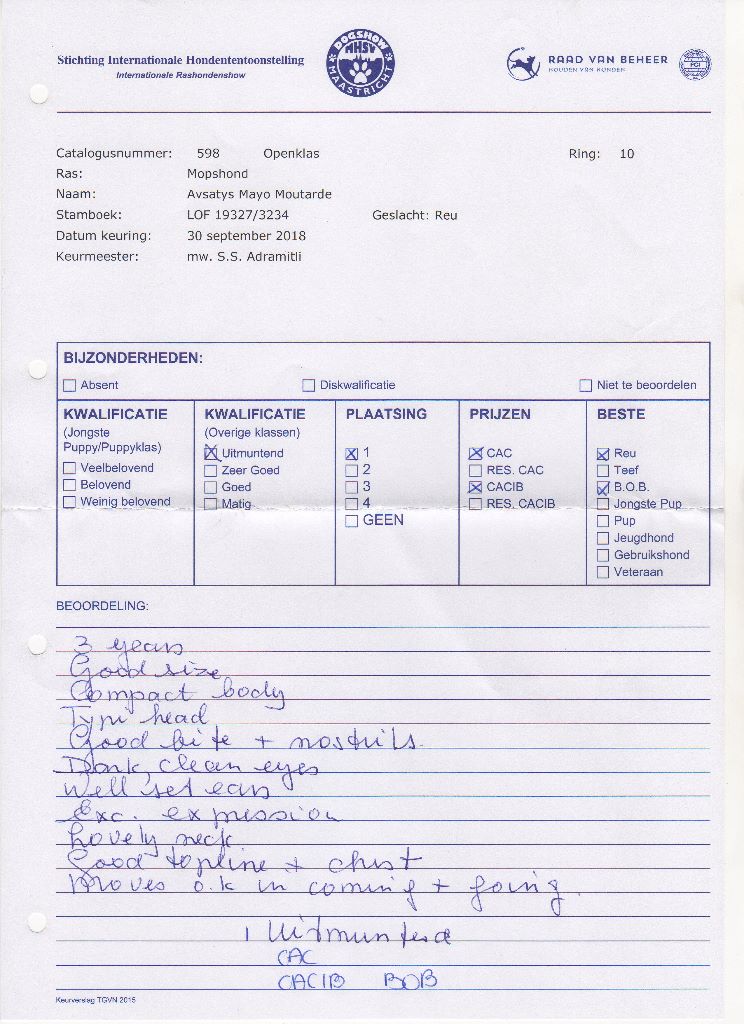 Stichting Internationale Hondententoonstelling
Internationale Rashondenshow
DOGSHOW
MHSV
MAASTRICHT
RAAD VAN BEHEER
HOUDEN VAN HONDEN
FCI
Catalogusnummer: 598 Openklas Ring: 10
Ras: Mopshond
Naam: Avsatys Mayo Moutarde
Stamboek: LOF 19327/3234 Geslacht: Reu
Datum keuring: 30 september 2018
Keurmeester: mw. S.S. Adramitli
BIJZONDERHEDEN:
Absent Diskwalificatie Niet te beoordelen
KWALIFICATIE
(Jongste
Puppy/Puppyklas)
Veelbelovend
Belovend
Weinig belovend
KWALIFICATIE
(Overige klassen)
Uitmuntend
Zeer Goed
Goed
Matig
PLAATSING
1
2
3
4
GEEN
PRIJZEN
CAC
RES. CAC
CACIB
RES. CACIB
BESTE
Reu
Teef
B.O.B.
Jongste Pup
Pup
Jeugdhond
Gebruikshond
Veteraan
BEOORDELING:
3 years
Good size
Compact body
Typi head
Good bite + nostrils.
Dark, clean eyes
Well set ears
Exc. expression
Lovely neck
Good topline + chest
Moves o.k in coming + going.
1 Uitmuntend
CAC
CACIB BOB
Keurverslag TGVN 2015